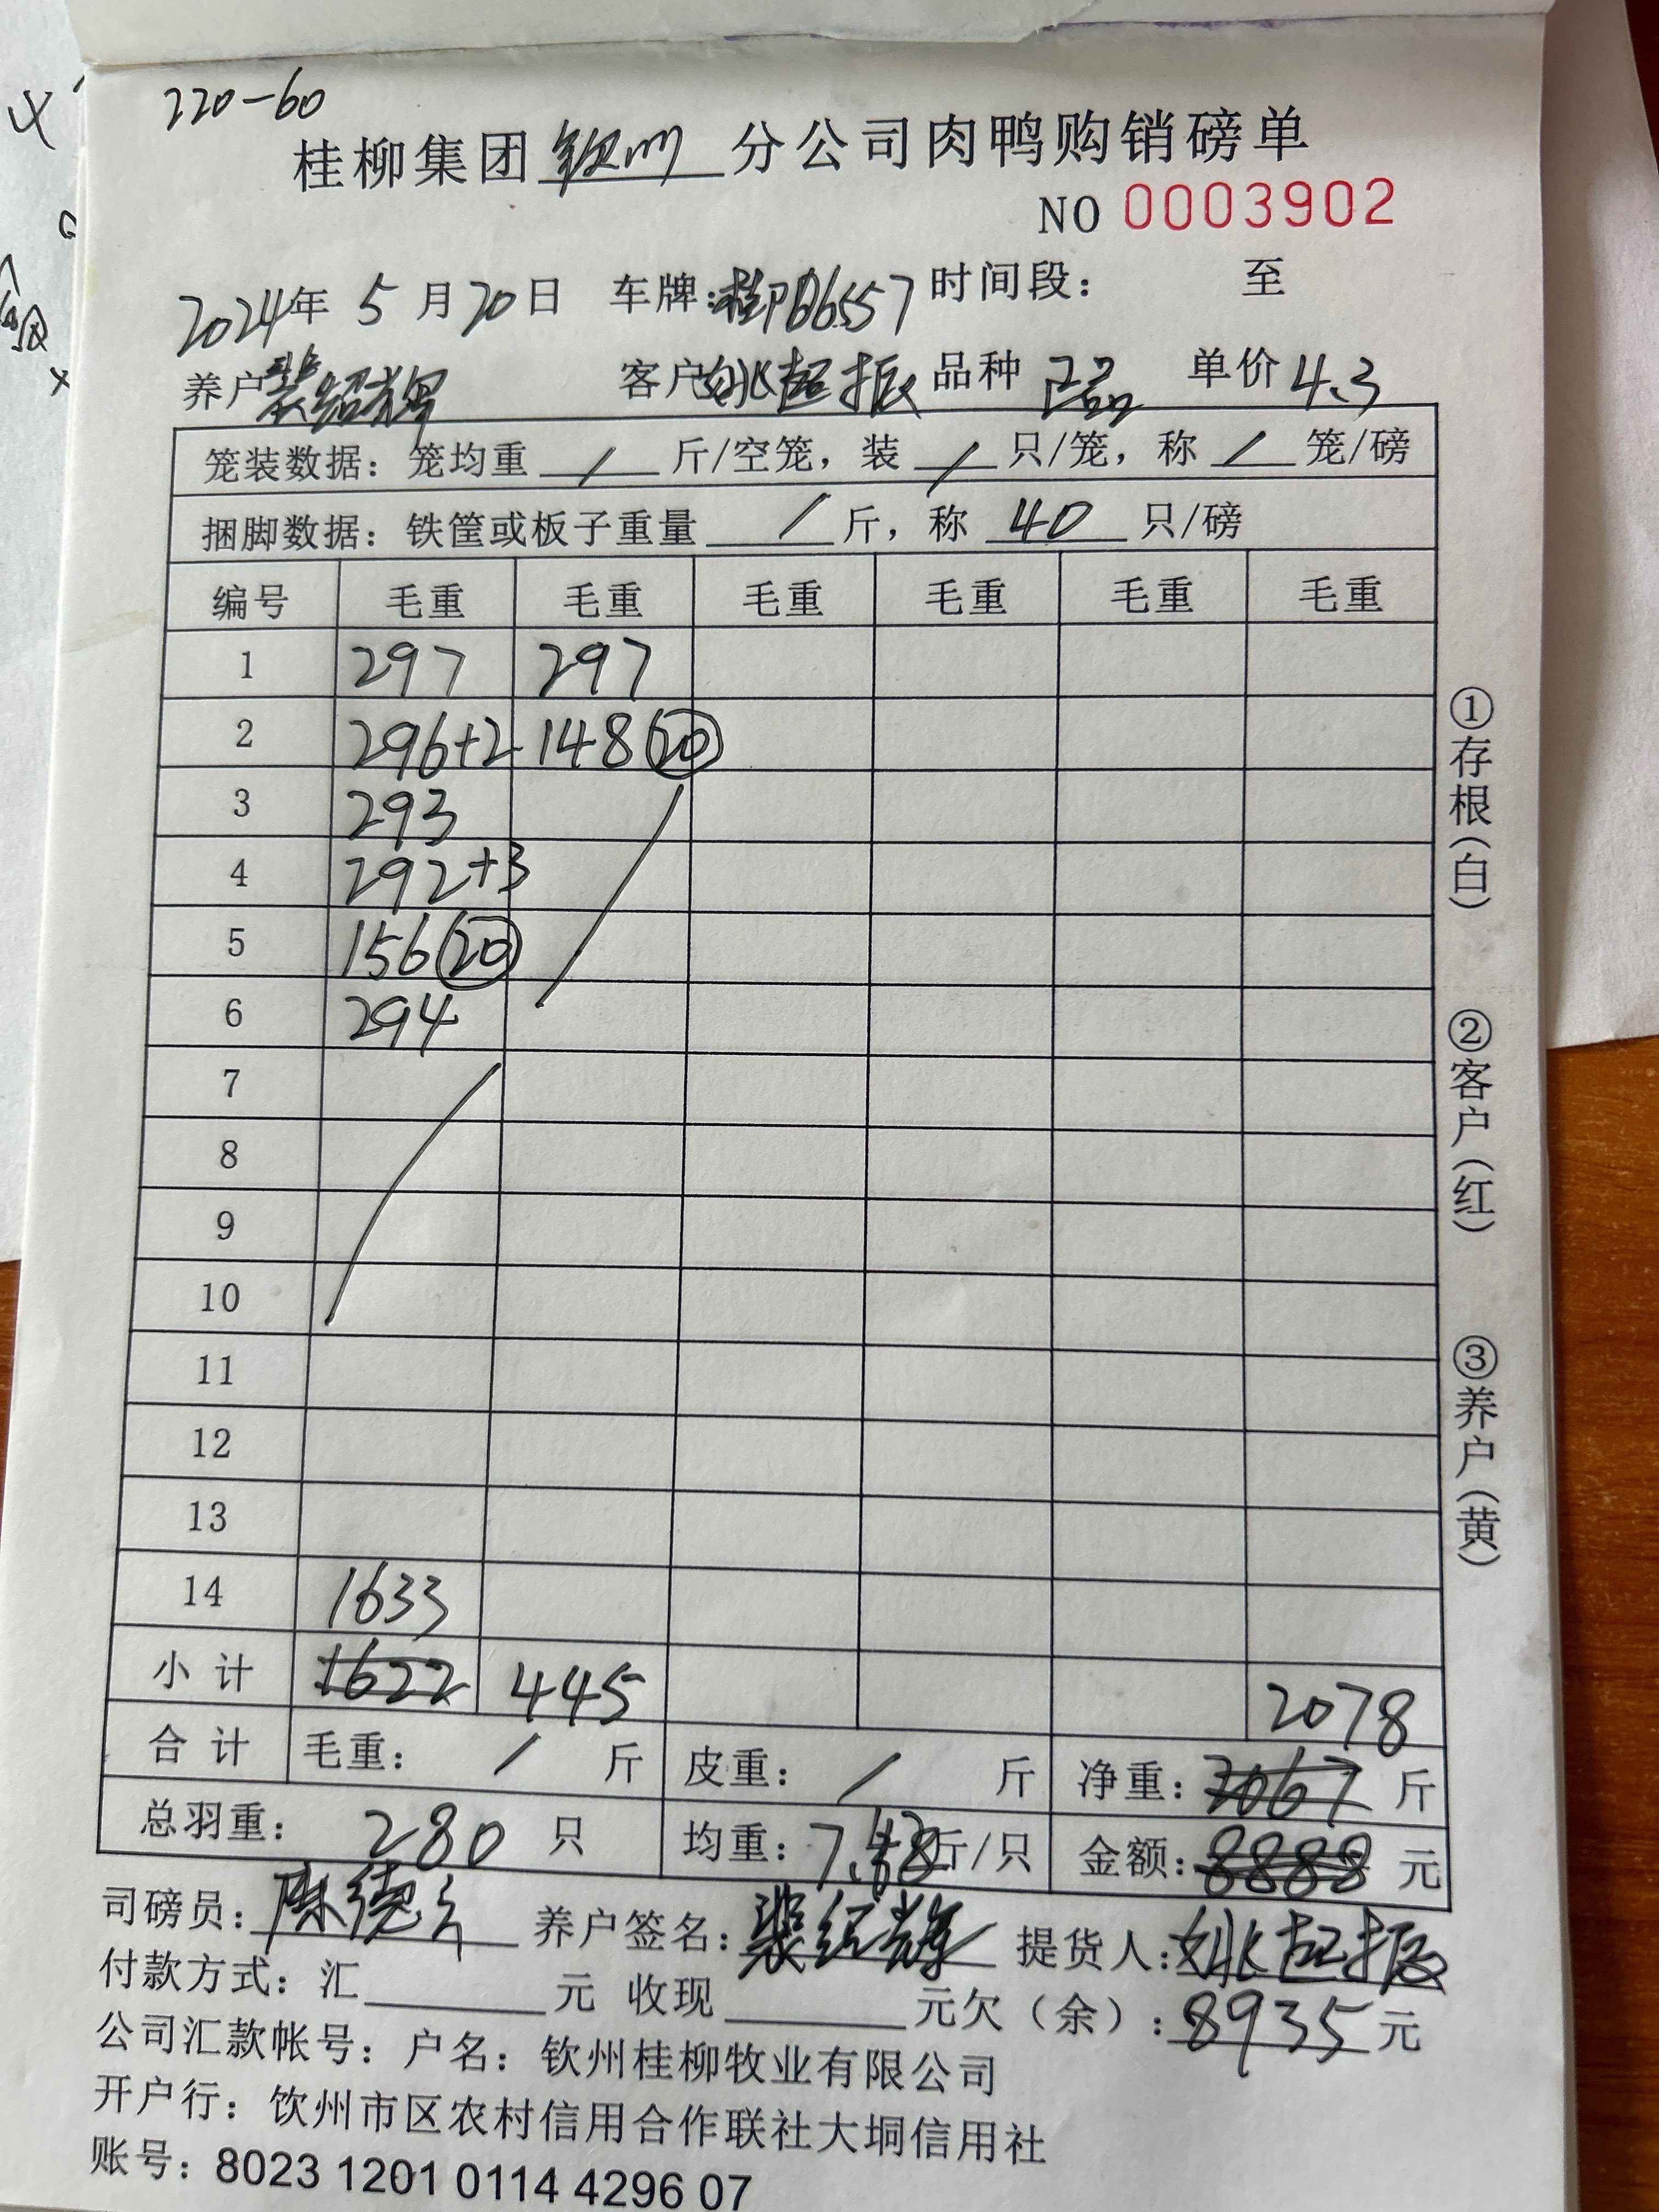 220-60
桂柳集团钦州分公司肉鸭购销磅单
NO 0003902
2024年 5月20日 车牌:桂PB6557 时间段: 至
养户裴绍辉 客户姚超振 品种 正品 单价4.3
笼装数据: 笼均重 / 斤/空笼, 装 / 只/笼, 称 / 笼/磅
捆脚数据: 铁筐或板子重量 / 斤, 称 40 只/磅
编号 毛重 毛重 毛重 毛重 毛重 毛重
1 297 297
2 296+2 148(20)
3 293
4 292+3
5 156(20)
6 294
7
8
9
10
11
12
13
14 1633
小计 1622 445 2078
合计 毛重: / 斤 皮重: / 斤 净重: 2067 斤
总羽重: 280 只 均重: 斤/只 金额: 8888 元
司磅员: 陈德 养户签名: 裴绍辉 提货人: 姚超振
付款方式: 汇 元 收现 元欠(余): 8935 元
公司汇款帐号: 户名: 钦州桂柳牧业有限公司
开户行: 饮州市区农村信用合作联社大垌信用社
账号: 8023 1201 0114 4296 07
①存根(白)
②客户(红)
③养户(黄)